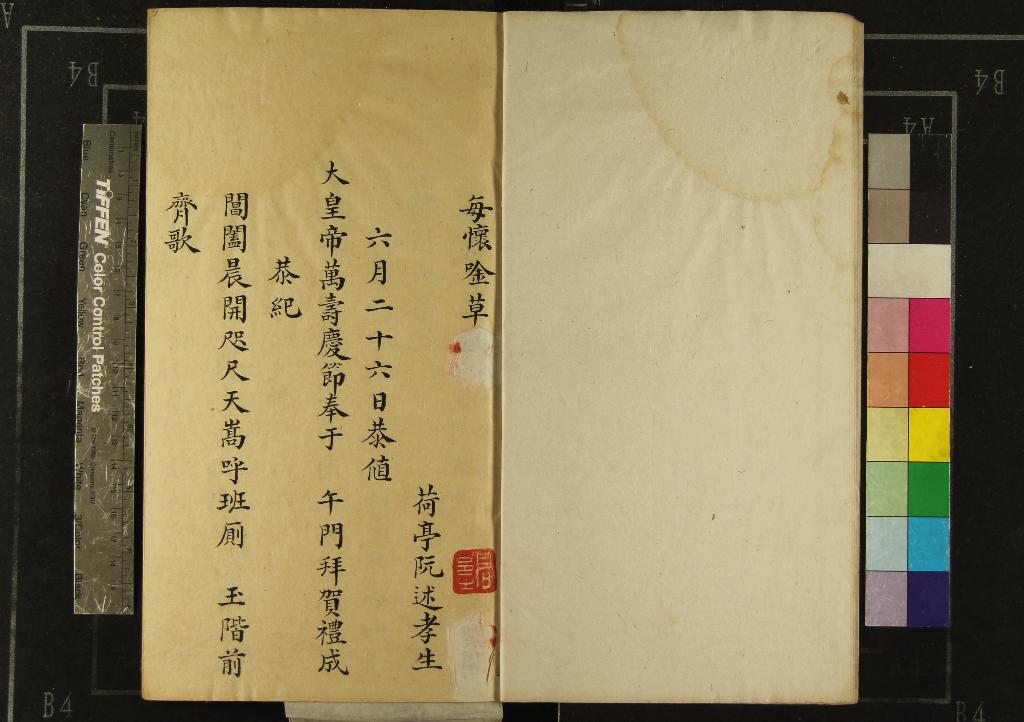 每懷唫草
荷亭阮述孝生
六月二十六日恭値
大皇帝萬壽慶節奉于 午門拜賀禮成
恭紀
閶闔晨開咫尺天嵩呼班厠 玉階前
齊歌
TIFFEN Color Control Patches
B4
B4
A4
B4
B4
A